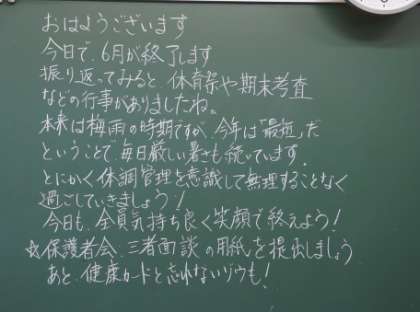 おはようございます
今日で、6月が終了します
振り返ってみると、体育祭や期末考査
などの行事がありましたね。
本来は梅雨の時期ですが、今年は「最短」だ
ということで、毎日厳しい暑さも続いています。
とにかく体調管理を意識して無理することなく
過ごしていきましょう!
今日も、全員気持ち良く笑顔で終えよう!
☆保護者会、三者面談の用紙を提出しましょう
あと、健康カードと忘れないゾウも!